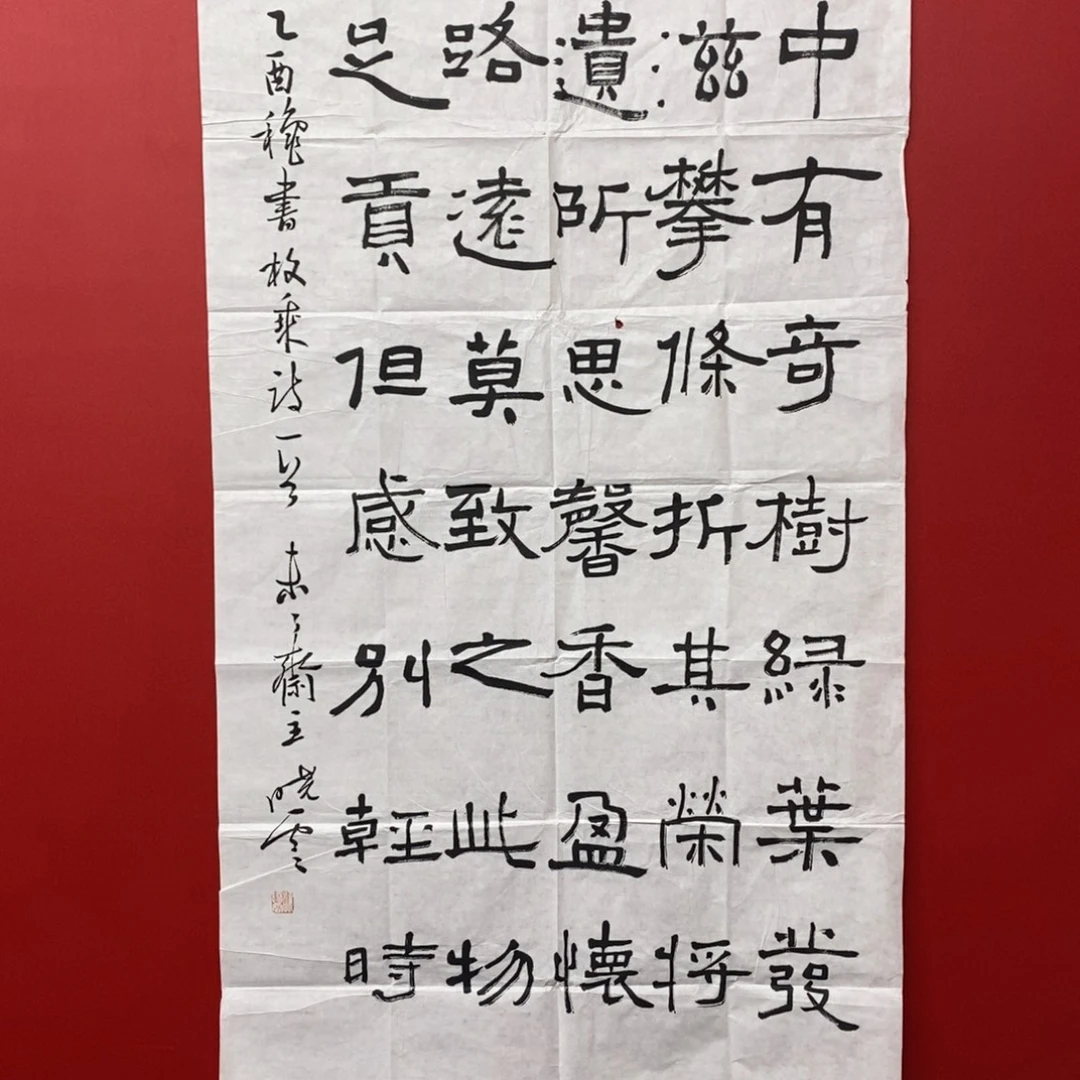 中有奇樹緑葉發
滋攀條折其榮將
遺所思馨香盈懷
路遠莫致之此物
足貢但感別輕時
乙酉穐書枚乘詩一首 未了齋主曉雲